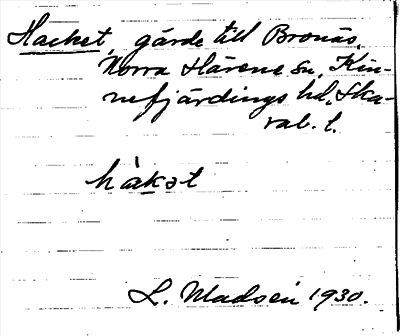 Hacket, gärde till Bronäs,
Norra Härene sn, Kin-
nefjärdings hd, Ska-
rab. l.
håkət
L. Madsén 1930.